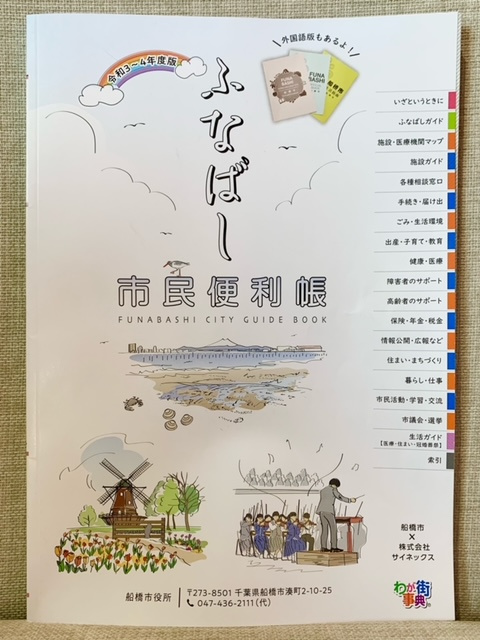 令和3～4年度版
外国語版もあるよ！
ふなばし
市民便利帳
FUNABASHI CITY GUIDE BOOK
いざというときに
ふなばしガイド
施設・医療機関マップ
施設ガイド
各種相談窓口
手続き・届け出
ごみ・生活環境
出産・子育て・教育
健康・医療
障害者のサポート
高齢者のサポート
保険・年金・税金
情報公開・広報など
住まい・まちづくり
暮らし・仕事
市民活動・学習・交流
市議会・選挙
生活ガイド
【医療・住まい・冠婚葬祭】
索引
船橋市
×
株式会社
サイネックス
わが街
事典
船橋市役所
〒273-8501 千葉県船橋市湊町2-10-25
047-436-2111（代）